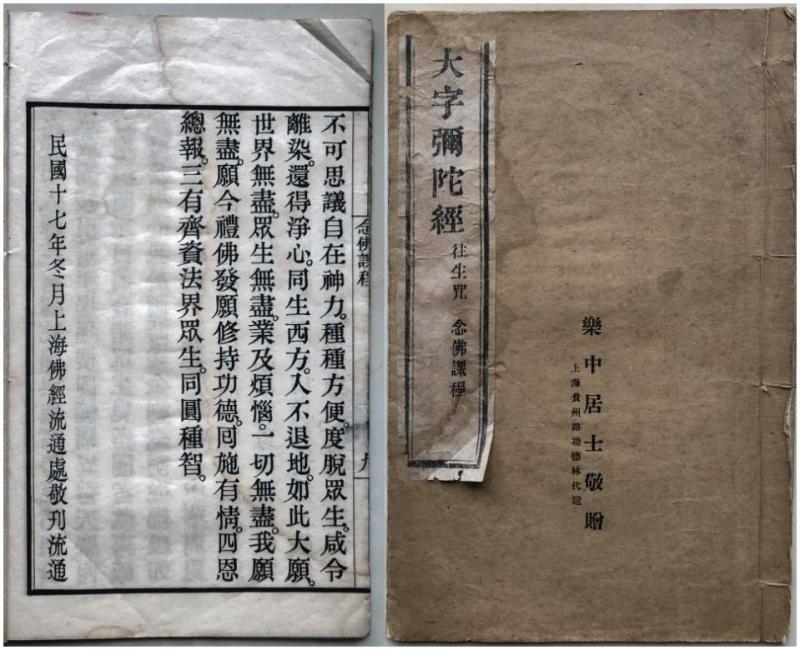 念佛課程
九
不可思議自在神力。種種方便。度脫眾生。咸令
離染。還得淨心。同生西方。入不退地。如此大願。
世界無盡。眾生無盡。業及煩惱。一切無盡。我願
無盡。願今禮佛發願修持功德。囘施有情。四恩
總報。三有齊資法界眾生。同圓種智。
民國十七年冬月上海佛經流通處敬刊流通
大字彌陀經 往生咒 念佛課程
樂中居士敬贈
上海貴州路功德林代送